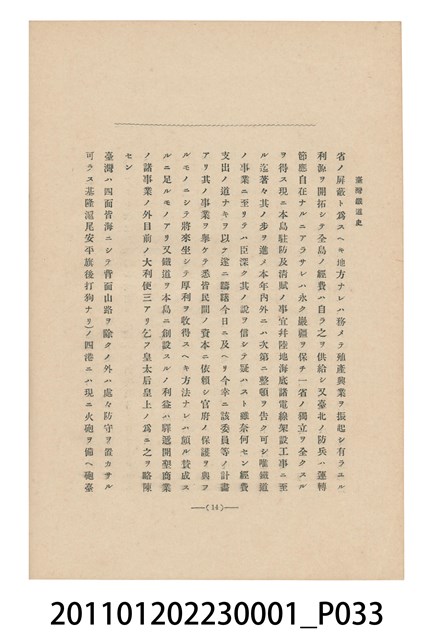 臺灣鐵道史
省ノ屏蔽ト爲スヘキ地方ナレハ務メテ殖產興業ヲ振起シ有ラユル
利源ヲ開拓シテ全島ノ經費ハ自ラ之ヲ供給シ又臺北ノ防兵ハ運轉
節應自在ナルニアラサレハ永ク嚴疆ヲ保チ一省ノ獨立ヲ全クスル
ヲ得ス現ニ本島駐防及清賦ノ事宜幷陸地海底諸電線架設工事ニ至
ル迄著々其ノ步ヲ進メ本年內外ニハ次第ニ整頓ヲ告ク可シ唯鐵道
ノ事業ニ至リテハ臣深ク其ノ說ヲ信シテ疑ハスト雖奈何セン經費
支出ノ道ナキヲ以テ遂ニ躊躇今日ニ及ヘリ今幸ニ該委員等ノ計畫
アリ其ノ事業ヲ擧ケテ悉皆民間ノ資本ニ依賴シ官府ノ保護ヲ與フ
ルモノニシテ將來坐シテ厚利ヲ收得スヘキ方法ナレハ頗ル贊成ス
ルニ足ルモノアリ又鐵道ヲ本島ニ創設スルノ利益ハ驛遞開墾商業
ノ諸事業ノ外目前ノ大利便三アリ乞フ皇太后皇上ノ爲ニ之ヲ略陳
セン
臺灣ハ四面皆海ニシテ背面山路ヲ除クノ外ハ處々防守ヲ置カサル
可ラス基隆滬尾安平旗後打狗ナリ)ノ四港ニハ現ニ火砲ヲ備ヘ砲臺
(14)
201101202230001_P033